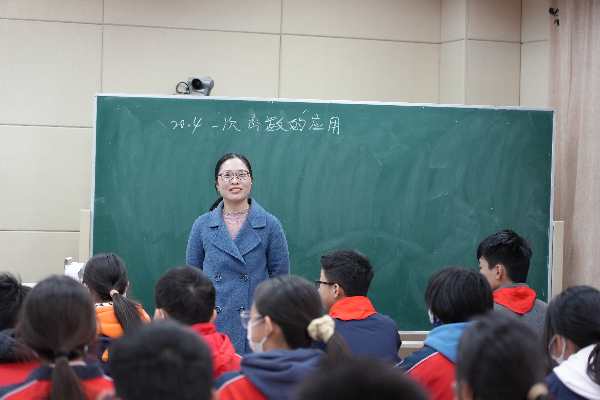 20.4 一次函数的应用